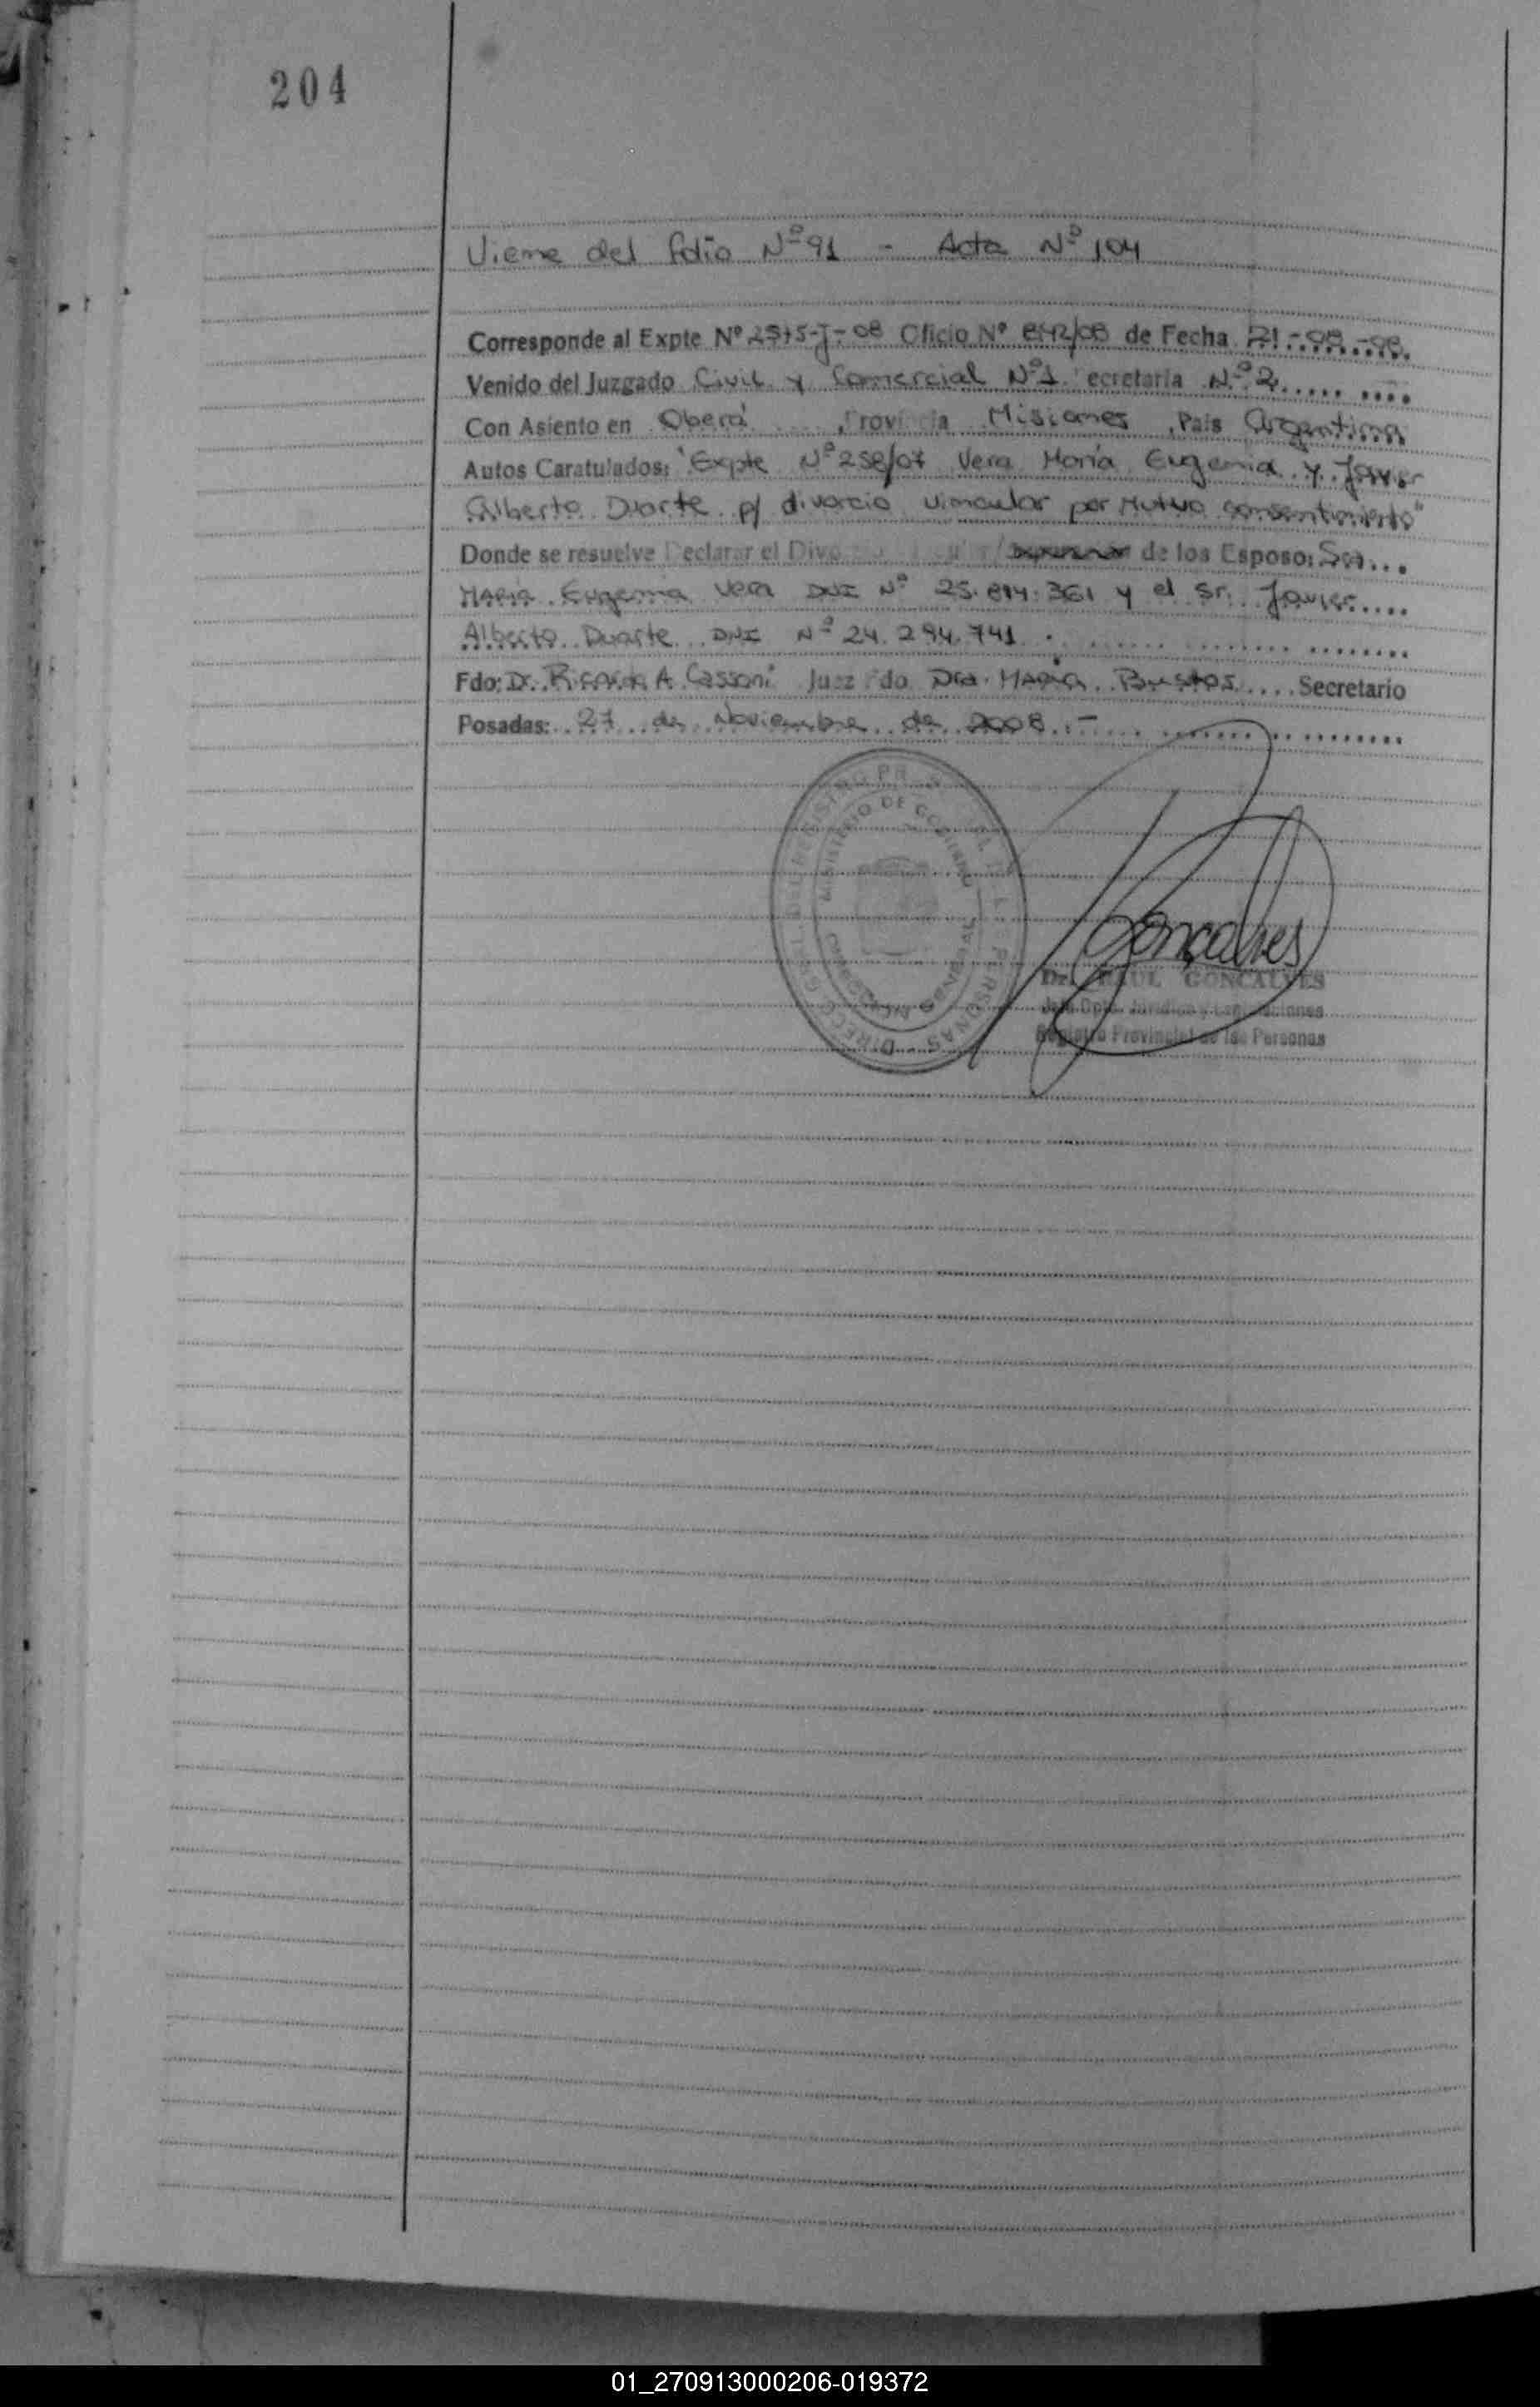 204
Viene del folio Nº 91 - Acta Nº 104
Corresponde al Expte Nº 2575-J-08 Oficio Nº 842/08 de Fecha 21-08-08
Venido del Juzgado Civil y Comercial Nº 1 ecretaria Nº 2
Con Asiento en Oberá, Provincia Misiones, Pais Argentina
Autos Caratulados: "Expte Nº 258/07 Vera María Eugenia y Javier
Alberto Duarte p/ divorcio vincular por Mutuo consentimiento"
Donde se resuelve Declarar el Divo de los Esposo: Sra
María Eugenia Vera DNI Nº 25.814.361 y el Sr. Javier
Alberto Duarte DNI Nº 24.294.741.
Fdo: Dr. Ricardo A. Cassoni Juez Fdo Dra. María Bustos Secretario
Posadas: 27 de Noviembre de 2008.-
MINISTERIO DE GOBIERNO
PERSONAS - DIRECC
Goncalves
Dr. RAUL GONCALVES
Jefe Dpto. Jurídico y
Registro Provincial de las Personas
01_270913000206-019372